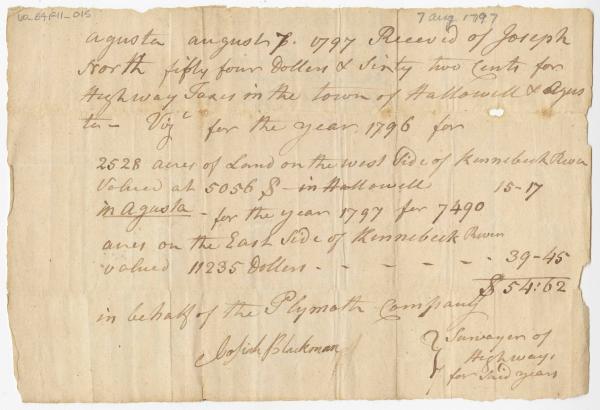 va_E4F11_015
7 aug 1797
agusta august 7. 1797 Received of Joseph
North fifty four Dollers & Sixty two Cents for
Highway Taxes in the town of Hallowell & Agus
ta - Vizt for the year 1796 for
2528 acres of Land on the west Side of Kennebeck River
Valued at 5056 $ - in Hallowell 15-17
in Agusta - for the year 1797 for 7490
acres on the East Side of Kennebeck River
valued 11235 Dollers - - - - - 39-45
$ 54:62
in behalf of the Plymoth Company
Josiah Blackman
Survayer of
Highways
for Said years